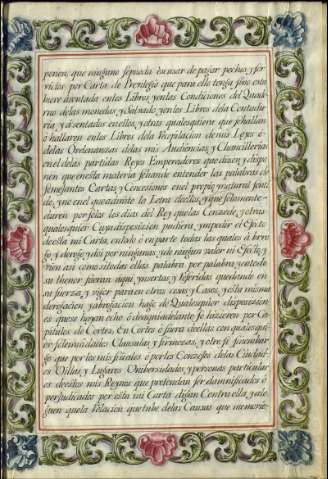 ponen, que ninguno se pueda escusar de pagar pechos, y ser
vicios por Carta de Previlegio que para ello tenga sino estu
biere asentada en los Libros, y en las Condiciones del Quader
no de las monedas, y Salvado, y en los Libros de la Contadu
ria, y asentados en ellos, y otras qualesquiera que se hallan
o hallaren en los Libros de la Recopilacion de mis Leyes ó
de las Ordenanzas de las mis Audiencias, y Chancillerias
en el de las partidas Reyes Emperadores que dizen, y dispo
nen que en esta materia se han de entender las palabras de
semejantes Cartas, y Concesiones en el propio, natural senti
do, y no en el que admite la Letra de ellas, y que solamente
duren por solos los dias del Rey que las Concede, y otras
qualesquier Cuya disposicion pudiera impedir el efecto
de esta mi Carta, en todo ó en parte todas las quales abrro
go, y derogo, y doy por ningunas, y de ningun valor ni efecto, y
bien asi como si todas ellas palabra por palabra, y en todo
su thenor fueran aqui ynsertas, y referidas quedando en
su fuerza, y vigor para en otros casos, y Cosas, y esta misma
derogacion, y abrogacion hago de Qualesquier disposicion
es que se hayan echo ó de aqui adelante se hicieren por Ca
pitulos de Cortes, En Cortes ó fuera de ellas con qualesqui
er solemnidades Clausulas, y firmezas, y otro si sin embar
go que por los mis fiscales ó por los Conzejos de las Ciudad
es Villas, y Lugares Universidades, y personas particular
es de estos mis Reynos que pretendan ser damnificados ó
perjudicados por esta mi Carta digan Contra ella, y ale
guen que la Relacion que tube de las Causas que me movie